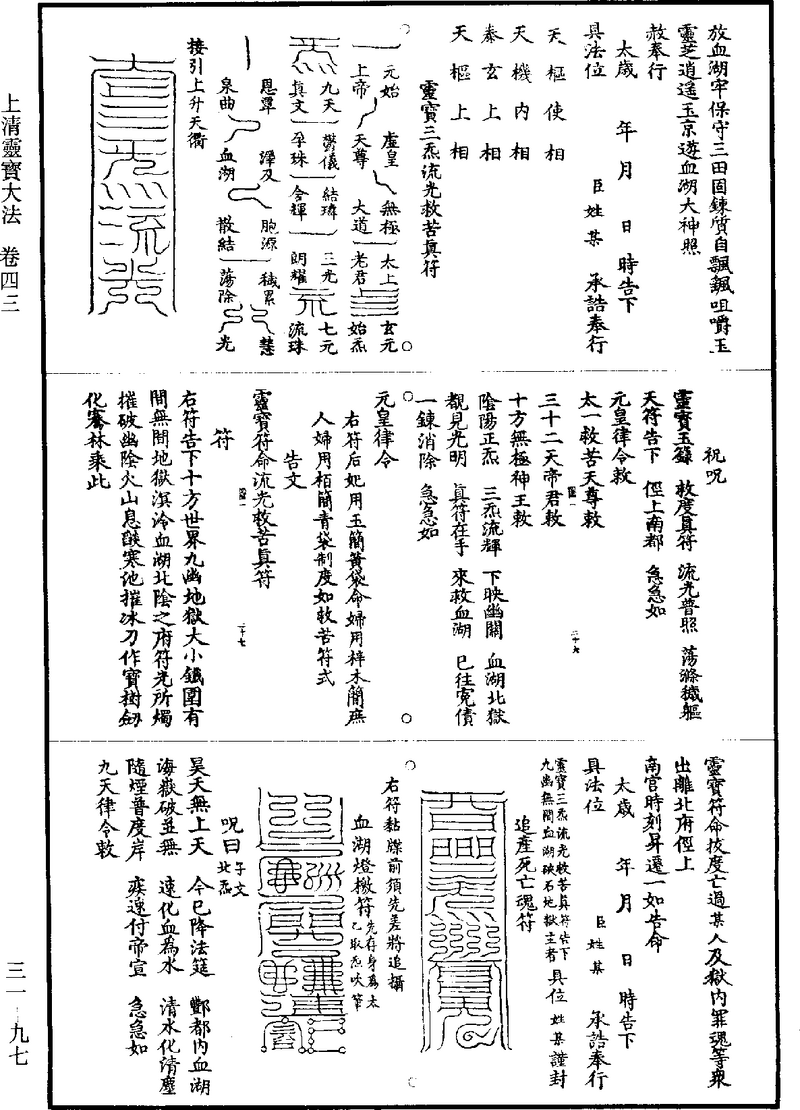 上清靈寶大法　卷四三
三一－九七
放血湖牢保守三田固鍊質自飄颻咀嚼玉
靈芝逍遙玉京遊血湖大神照
赦奉行
太歲　年　月　日　時告下
具法位　臣姓某　承誥奉行
天樞使相
天機內相
泰玄上相
天樞上相
靈寶三炁流光救苦眞符
元始　虛皇　無極　太上　玄元
上帝　天尊　大道　老君　始炁
九天　鬱儀　結璘　三光　七元
眞文　孕珠　含輝　朗耀　流珠
恩覃　澤及　胞源　穢累　慧
泉曲　血湖　散結　蕩除　光
接引上升天衢
祝呪
靈寶玉籙　救度眞符　流光普照　蕩滌穢軀
天符告下　徑上南都　急急如
元皇律令敕
太一救苦天尊敕
三十二天帝君敕
十方無極神王敕
陰陽正炁　三炁流輝　下映幽關　血湖北獄
覩見光明　眞符在手　來救血湖　已往冤債
一鍊消除　急急如
元皇律令
右符后妃用玉簡黃袋命婦用梓木簡庶
人婦用栢簡青袋制度如救苦符式
告文
靈寶符命流光救苦眞符
符
右符告下十方世界九幽地獄大小鐵圍有
間無間地獄溟泠血湖北陰之府符光所燭
摧破幽陰火山息燄寒池摧冰刀作寶樹劍
化騫林乘此
靈寶符命拔度亡過某人及獄內罪魂等衆
出離北府徑上
南宮時刻昇遷一如告命
太歲　年　月　日　時告下
具法位　臣姓某　承誥奉行
靈寶三炁流光救苦眞符告下
九幽無間血湖硤石地獄主者　具位　姓某謹封
追產死亡魂符
右符黏牒前須先差將追攝
血湖燈檄符先存身爲太乙取炁吹筆
呪曰
昊天無上天　今已降法筵　酆都內血湖
海嶽破並無　速化血爲水　清水化清塵
隨煙普度岸　疾速付帝宣　急急如
九天律令敕